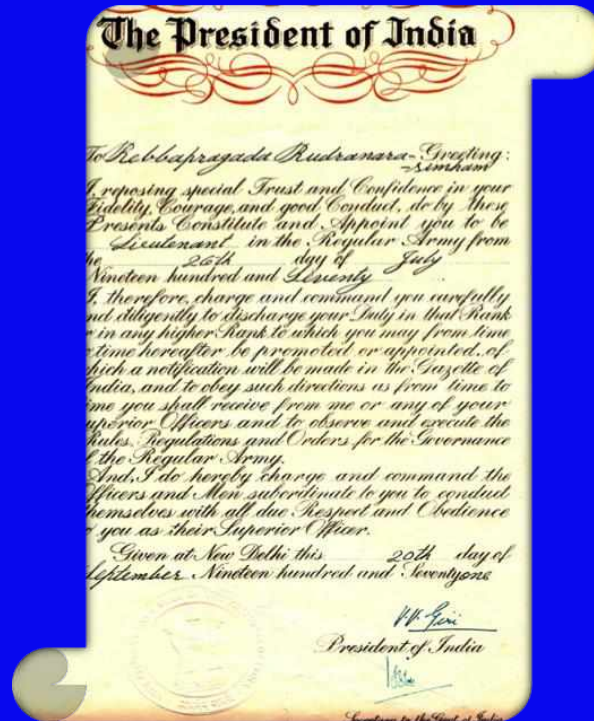 The President of India
To Rebbapragada Rudranara- Greeting:
-simham
I, reposing special Trust and Confidence in your
Fidelity, Courage, and good Conduct, do by these
Presents Constitute and Appoint you to be
Lieutenant in the Regular Army from
he 26th day of July
Nineteen hundred and Seventy
I, therefore, charge and command you carefully
nd diligently to discharge your Duty in that Rank
r in any higher Rank to which you may from time
o time hereafter be promoted or appointed, of
hich a notification will be made in the Gazette of
India, and to obey such directions as from time to
ime you shall receive from me or any of your
uperior Officers and to observe and execute the
Rules, Regulations and Orders for the Governance
f the Regular Army.
And, I do hereby charge and command the
Officers and Men subordinate to you to conduct
hemselves with all due Respect and Obedience
o you as their Superior Officer.
Given at New Delhi this 20th day of
September Nineteen hundred and Seventyone
V.V. Giri
President of India
Secretary to the Govt of India